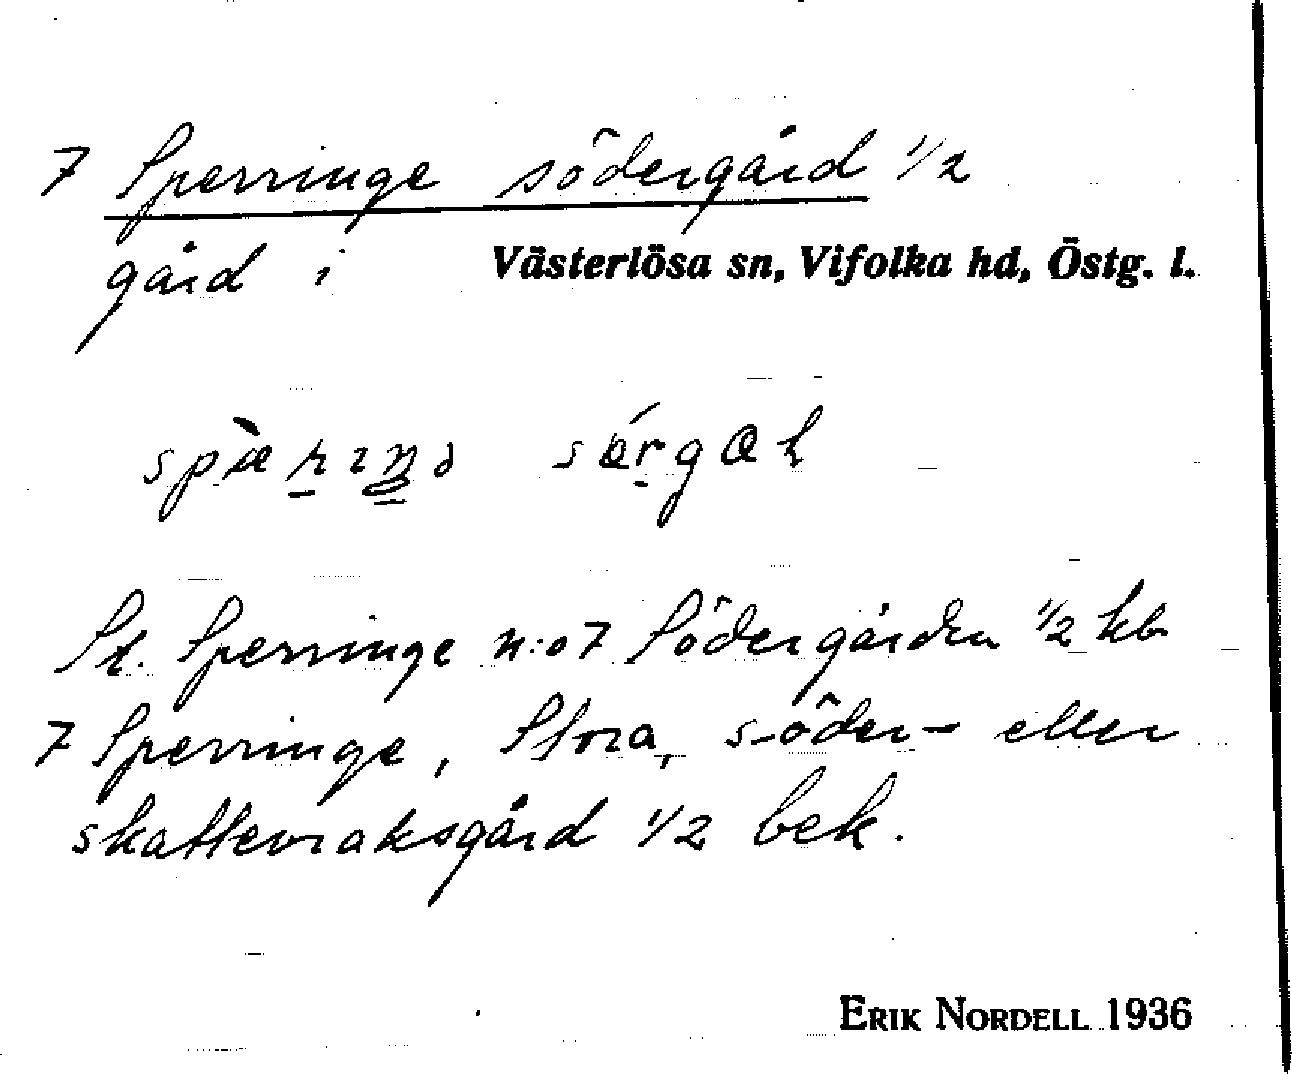 7 Sperringe södergård 1/2
gård i Västerlösa sn, Vifolka hd, Östg. l.
St. Sperringe n:o 7 Södergården 1/2 kb
7 Sperringe, Stora, söder- eller
skattevraksgård 1/2 bek.
ERIK NORDELL 1936